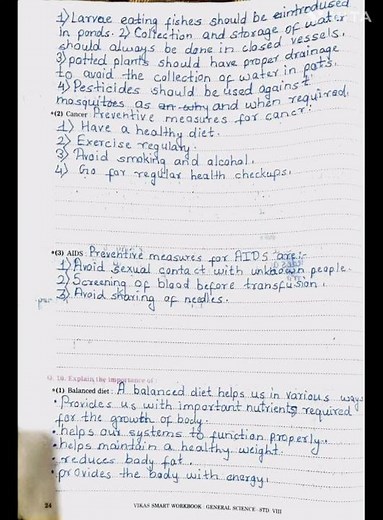 1) Larvae eating fishes should be introduced
in ponds. 2) Collection and storage of water
should always be done in closed vessels.
3) potted plants should have proper drainage
to avoid the collection of water in pots.
4) Pesticides should be used against
mosquitoes as and when required.
*(2) Cancer Preventive measures for cancer:
1) Have a healthy diet.
2) Exercise regulary.
3) Avoid smoking and alcohol.
4) Go for regular health checkups.
*(3) AIDS : Preventive measures for AIDS are:-
1) Avoid sexual contact with unknown people.
2) Screening of blood before transfusion.
3) Avoid sharing of needles.
Q. 10. Explain the importance of :
*(1) Balanced diet : A balanced diet helps us in various ways
• Provides us with important nutrients required
for the growth of body.
• helps our systems to function properly.
• helps maintain a healthy weight.
• reduces body fat.
• provides the body with energy.
24
VIKAS SMART WORKBOOK : GENERAL SCIENCE - STD. VIII